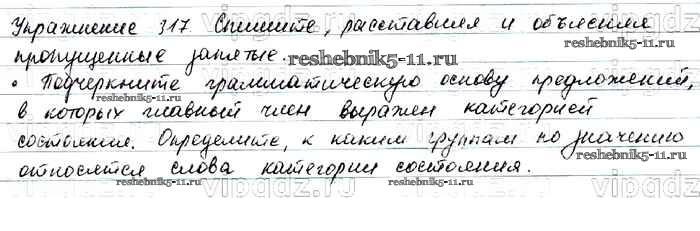 Упражнение 317. Спишите, расставляя и объясняя
пропущенные запятые.
reshebnik5-11.ru
• Подчеркните грамматическую основу предложений,
reshebnik5-11.ru
в которых главный член выражен категорией
состояния. Определите, к каким группам по значению
относятся слова категории состояния.
reshebnik5-11.ru reshebnik5-11.ru
vipgdz.ru vipgdz.ru